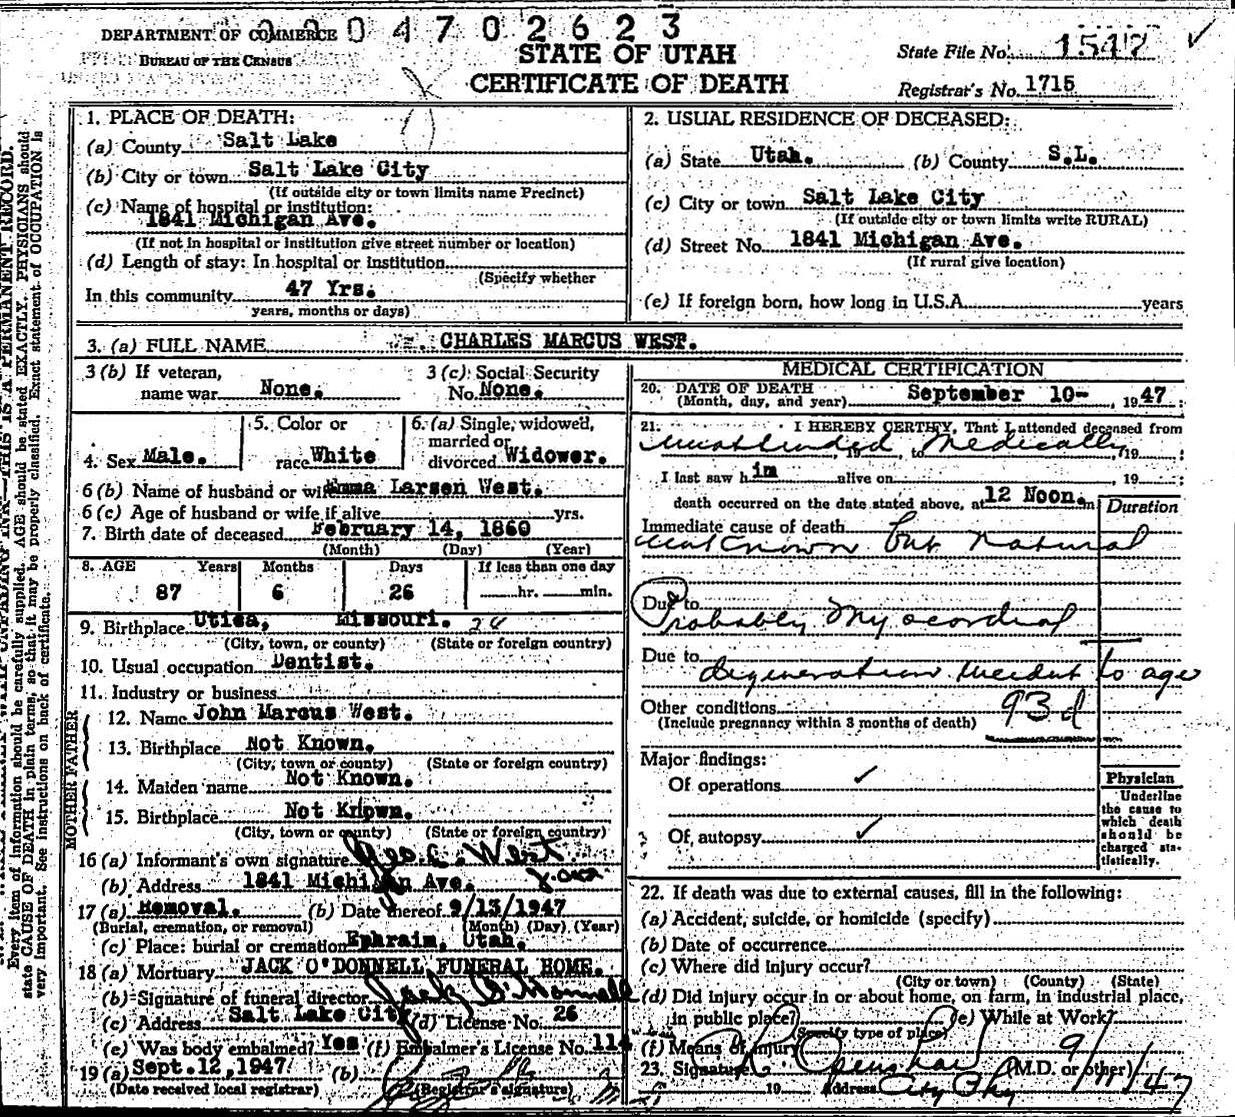 DEPARTMENT OF COMMERCE 0 4 7 0 2 6 2 3
BUREAU OF THE CENSUS
STATE OF UTAH
CERTIFICATE OF DEATH
State File No. 1547 ✓
Registrar's No. 1715
1. PLACE OF DEATH:
(a) County Salt Lake
(b) City or town Salt Lake City
(If outside city or town limits name Precinct)
(c) Name of hospital or institution:
1841 Michigan Ave.
(If not in hospital or institution give street number or location)
(d) Length of stay: In hospital or institution
(Specify whether
In this community 47 Yrs.
years, months or days)
2. USUAL RESIDENCE OF DECEASED:
(a) State Utah. (b) County S.L.
(c) City or town Salt Lake City
(If outside city or town limits write RURAL)
(d) Street No. 1841 Michigan Ave.
(If rural give location)
(e) If foreign born, how long in U.S.A. years
3. (a) FULL NAME CHARLES MARCUS WEST.
3 (b) If veteran,
name war None.
3 (c) Social Security
No. None.
4. Sex Male.
5. Color or
race White
6. (a) Single, widowed,
married or
divorced Widower.
6 (b) Name of husband or wife Emma Larsen West.
6 (c) Age of husband or wife if alive yrs.
7. Birth date of deceased February 14, 1860
(Month) (Day) (Year)
8. AGE Years Months Days If less than one day
87 6 26 hr. min.
9. Birthplace Utica, Missouri. 24
(City, town, or county) (State or foreign country)
10. Usual occupation Dentist.
11. Industry or business
FATHER
12. Name John Marcus West.
13. Birthplace Not Known.
(City, town or county) (State or foreign country)
MOTHER
14. Maiden name Not Known.
15. Birthplace Not Known.
(City, town or county) (State or foreign country)
16 (a) Informant's own signature Geo. C. West
(b) Address 1841 Michigan Ave.
17 (a) Removal. (b) Date thereof 9/13/1947
(Burial, cremation, or removal) (Month) (Day) (Year)
(c) Place: burial or cremation Ephraim, Utah.
18 (a) Mortuary JACK O'DONNELL FUNERAL HOME.
(b) Signature of funeral director Jack O'Donnell
(c) Address Salt Lake City (d) License No. 26
(e) Was body embalmed? Yes (f) Embalmer's License No. 114
19 (a) Sept. 12, 1947 (b)
(Date received local registrar) (Registrar's signature)
MEDICAL CERTIFICATION
20. DATE OF DEATH
(Month, day, and year) September 10- , 1947
21. I HEREBY CERTIFY, That I attended deceased from
unattended , 19 , to Medically , 19 ;
I last saw him alive on , 19 ;
death occurred on the date stated above, at 12 Noon. m
Duration
Immediate cause of death
unknown but natural
Due to
Probably Myocardial
Due to
degeneration incident to age
Other conditions
(Include pregnancy within 3 months of death) 93d
Major findings:
Of operations ✓
Of autopsy ✓
Physician
Underline
the cause to
which death
should be
charged sta-
tistically.
22. If death was due to external causes, fill in the following:
(a) Accident, suicide, or homicide (specify)
(b) Date of occurrence
(c) Where did injury occur?
(City or town) (County) (State)
(d) Did injury occur in or about home, on farm, in industrial place,
in public place? (e) While at Work?
(Specify type of place)
(f) Means of injury
23. Signature (M.D. or other) 9/11/47
19 Address City Phy
Every item of information should be carefully supplied. AGE should be stated EXACTLY. PHYSICIANS should
state CAUSE OF DEATH in plain terms, so that it may be properly classified. Exact statement of OCCUPATION is
very important. See instructions on back of certificate.